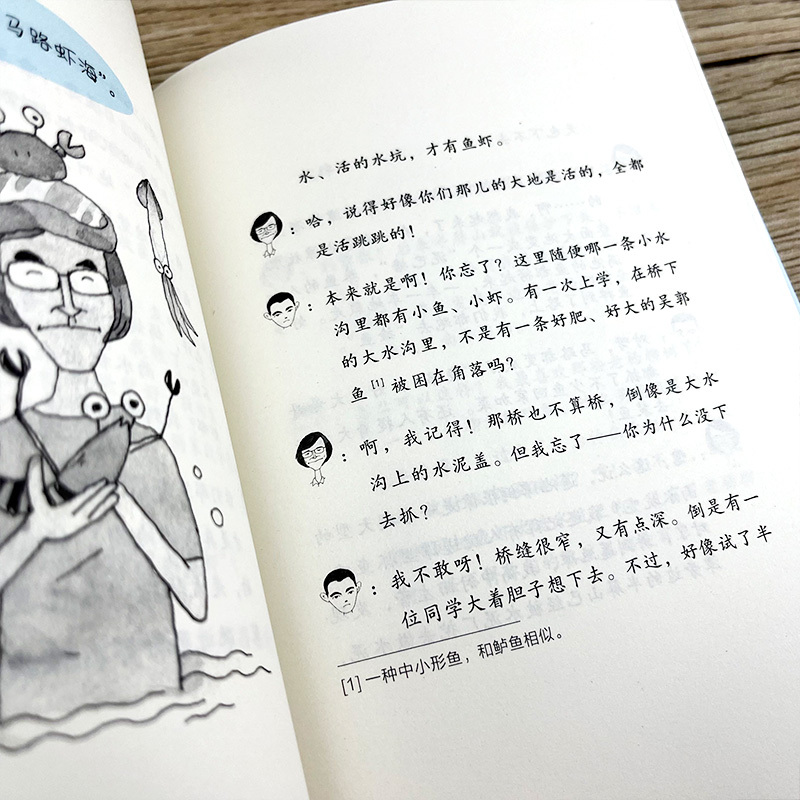 马路虾海”。
水、活的水坑，才有鱼虾。
：哈，说得好像你们那儿的大地是活的，全都
是活跳跳的！
：本来就是啊！你忘了？这里随便哪一条小水
沟里都有小鱼、小虾。有一次上学，在桥下
的大水沟里，不是有一条好肥、好大的吴郭
鱼[1]被困在角落吗？
：啊，我记得！那桥也不算桥，倒像是大水
沟上的水泥盖。但我忘了——你为什么没下
去抓？
：我不敢呀！桥缝很窄，又有点深。倒是有一
位同学大着胆子想下去。不过，好像试了半
[1]一种中小形鱼，和鲈鱼相似。